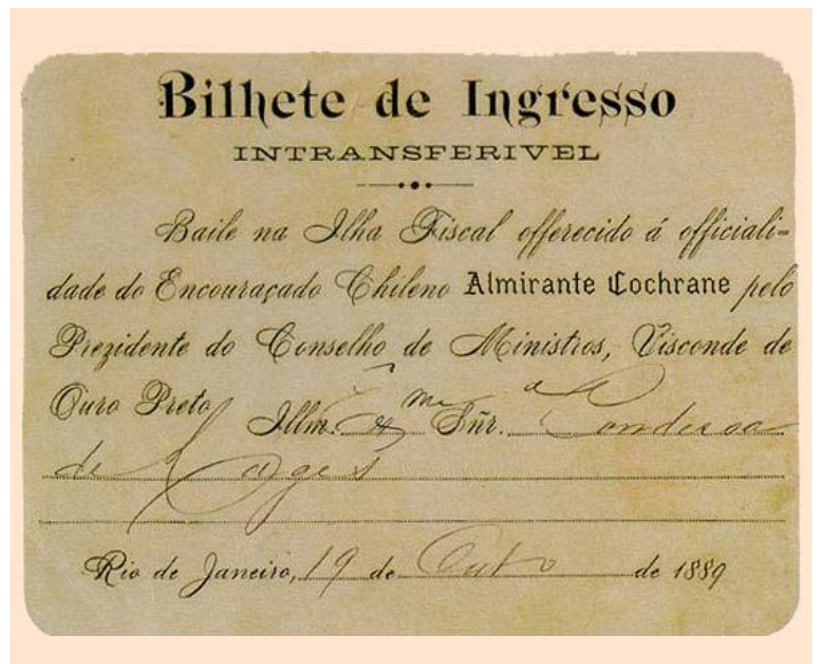 Bilhete de Ingresso
INTRANSFERIVEL
Baile na Ilha Fiscal offerecido á officiali-
dade do Encouraçado Chileno Almirante Cochrane pelo
Prezidente do Conselho de Ministros, Visconde de
Ouro Preto Illm. Exma Snr.a Condessa
de Lages
Rio de Janeiro, 19 de Outo de 1889